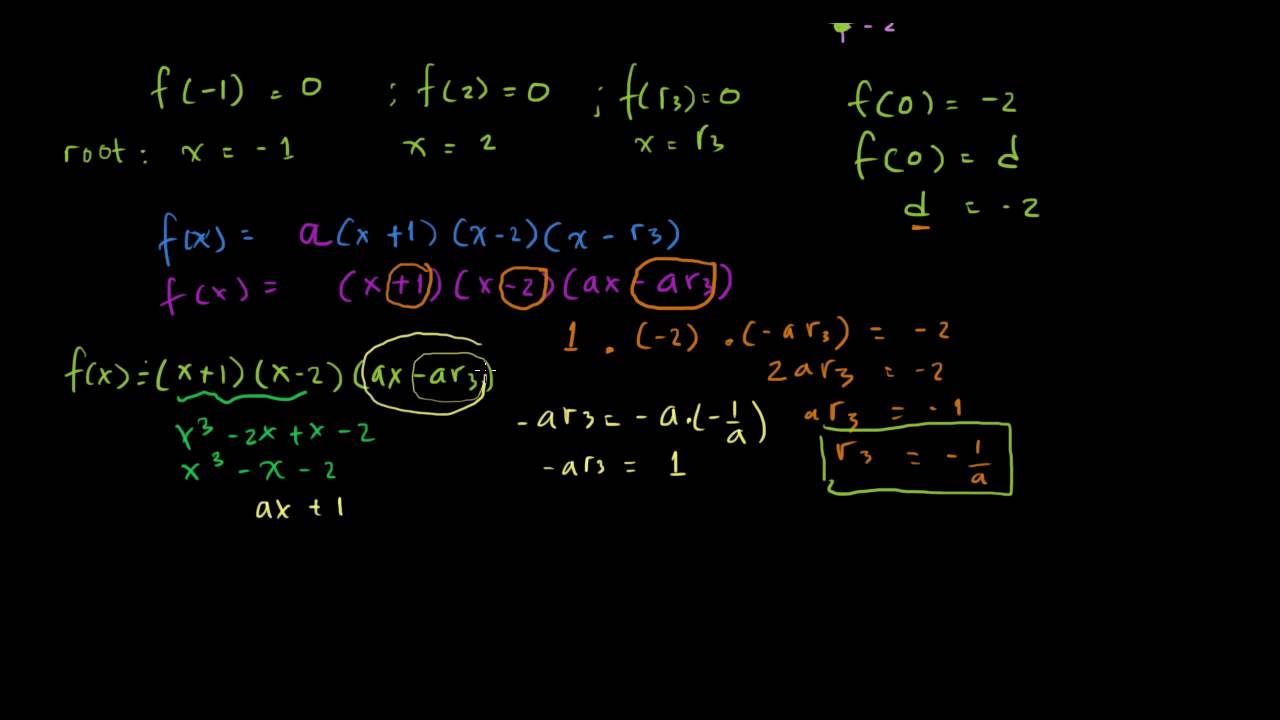 f(-1) = 0 ; f(2) = 0 ; f(r₃) = 0
root : x = -1 x = 2 x = r₃
f(0) = -2
f(0) = d
d = -2
f(x) = a(x+1)(x-2)(x-r₃)
f(x) = (x+1)(x-2)(ax-ar₃)
1 . (-2) . (-ar₃) = -2
2ar₃ = -2
ar₃ = -1
r₃ = -1/a
f(x) = (x+1)(x-2)(ax-ar₃)
x³ -2x + x -2
x³ - x - 2
ax + 1
-ar₃ = -a.(-1/a)
-ar₃ = 1